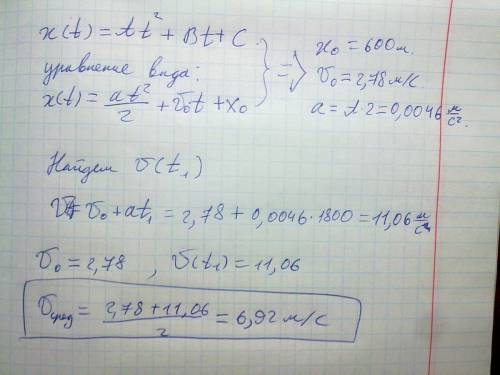 x(t) = At² + Bt + C.
уравнение вида:
x(t) = at²/2 + v₀t + x₀
} =>
x₀ = 600 м.
v₀ = 2,78 м/с.
a = A·2 = 0,0046 м/с².
Найдем v(t₁)
v = v₀ + at₁ = 2,78 + 0,0046·1800 = 11,06 м/с
v₀ = 2,78 , v(t₁) = 11,06
vсред = (2,78 + 11,06)/2 = 6,92 м/с